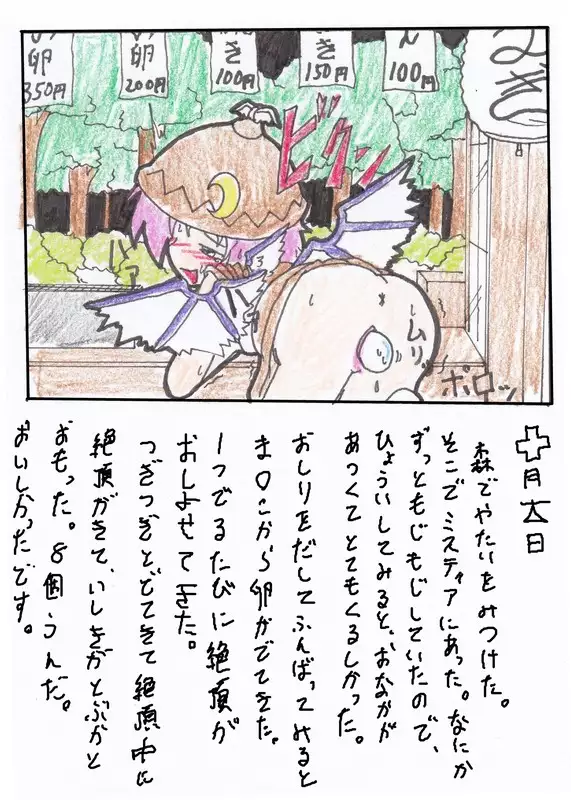 卵 350円
卵 200円
き 100円
き 150円
ん 100円
ビクン
ハァ
ムリッ
ポロッ
十月六日
森でやたいをみつけた。
そこでミスティアにあった。なにか
ずっともじもじしていたので、
ひょういしてみると、おなかが
あつくてとてもくるしかった。
おしりをだしてふんばってみると
ま〇こから卵がでてきた。
1つでるたびに絶頂が
おしよせてきた。
つぎつぎとでてきて絶頂中に
絶頂がきて、いしきがとぶかと
おもった。8個うんだ。
おいしかったです。